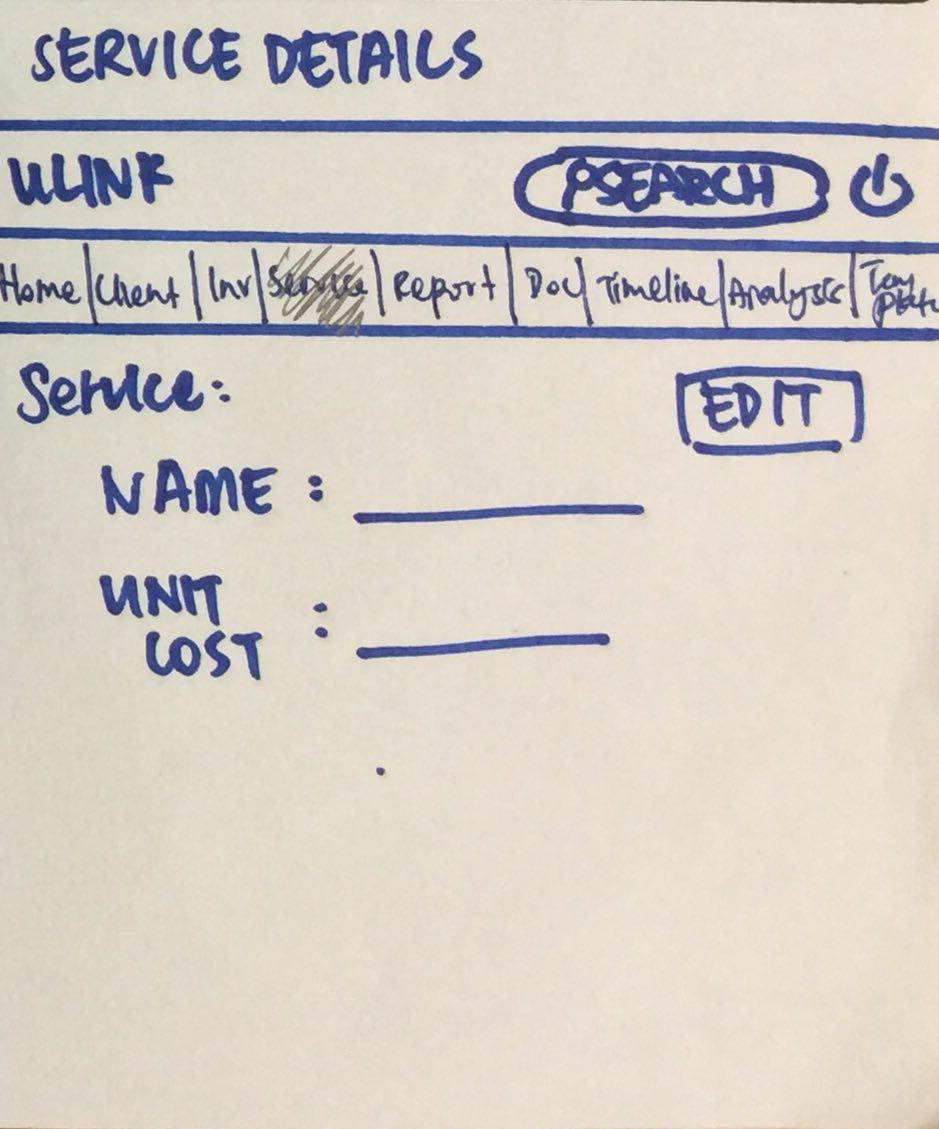 SERVICE DETAILS
ULINK SEARCH
Home | Client | Inv | Service | Report | Doc | Timeline | Analysis | Tem plate
Service: EDIT
NAME :
UNIT
COST :